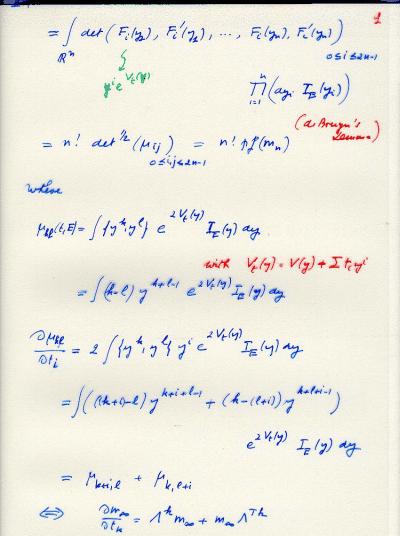 1
= ∫_{ℝⁿ} det ( F_i(y_1), F_i'(y_1), ..., F_i(y_n), F_i'(y_n) )_{0≤i≤2n-1}
y^i e^{V_t(y)}
∏_{i=1}^{n} (dy_i I_E(y_i))
(de Bruyn's Lemma)
= n! det^{1/2} (μ_{ij})_{0≤i,j≤2n-1} = n! pf(m_n)
where
μ_{kl}(t,E) = ∫ {y^k, y^l} e^{2V_t(y)} I_E(y) dy
with V_t(y) = V(y) + Σ t_i y^i
= ∫ (k-l) y^{k+l-1} e^{2V_t(y)} I_E(y) dy
∂μ_{kl}/∂t_i = 2 ∫ {y^k, y^l} y^i e^{2V_t(y)} I_E(y) dy
= ∫ ((k+i)-l) y^{k+i+l-1} + (k-(l+i)) y^{k+l+i-1})
e^{2V_t(y)} I_E(y) dy
= μ_{k+i,l} + μ_{k,l+i}
⇔ ∂m_∞/∂t_k = Λ^k m_∞ + m_∞ Λ^{Tk}